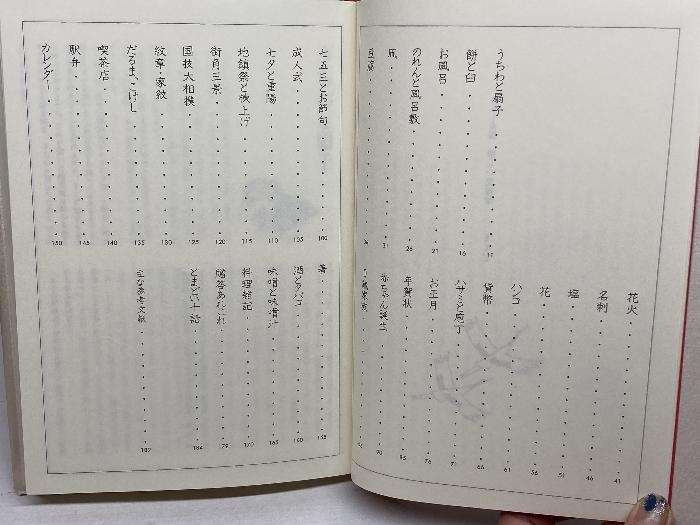 うちわと扇子 11
餅と臼 16
お風呂 21
のれんと風呂敷 26
凧 31
豆腐 36
花火 41
名刺 46
塩 51
花 56
ハンコ 61
貨幣 66
ハサミと庖丁 71
お正月 76
年賀状 85
赤ちゃん誕生 90
七五三とお節句 100
成人式 105
七夕と重陽 110
地鎮祭と棟上げ 115
街角三景 120
国技大相撲 125
紋章・家紋 130
だるま、こけし 135
喫茶店 140
駅弁 145
カレンダー 150
箸 155
酒とタバコ 160
味噌と味噌汁 165
料理雑記 170
贈答あれこれ 179
とまどい十話 184
主な参考文献 189